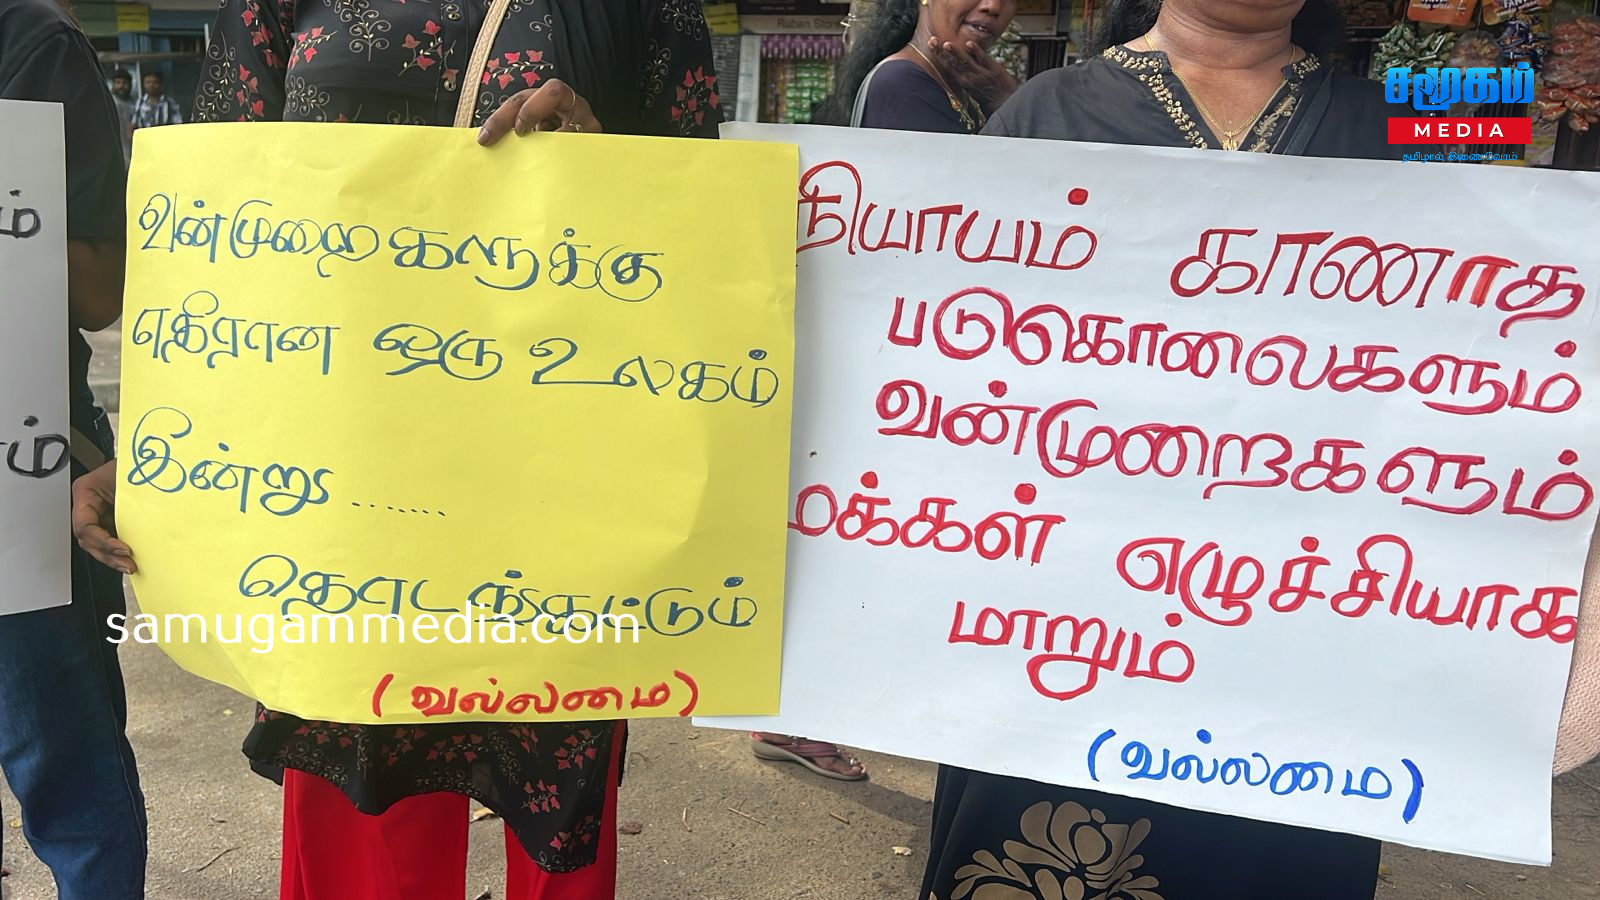 Ruban Store
சமூகம்
MEDIA
தமிழால் இணைவோம்
வன்முறைகளுக்கு
எதிரான ஒரு உலகம்
இன்று .........
தொடங்கட்டும்
(வல்லமை)
samugammedia.com
நியாயம் காணாத
படுகொலைகளும்
வன்முறைகளும்
மக்கள் எழுச்சியாக
மாறும்
(வல்லமை)